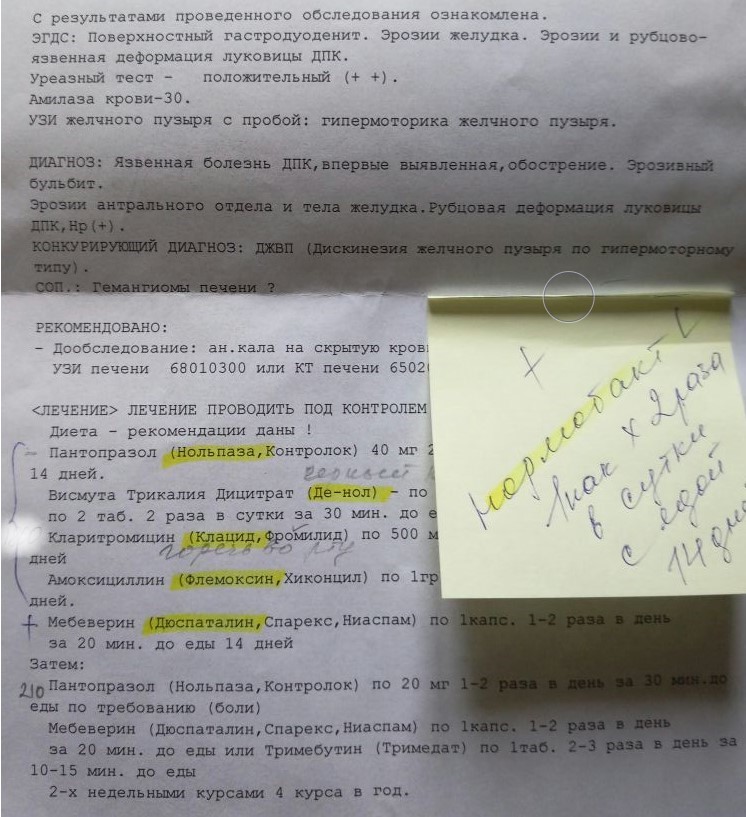 С результатами проведенного обследования ознакомлена.
ЭГДС: Поверхностный гастродуоденит. Эрозии желудка. Эрозии и рубцово-
язвенная деформация луковицы ДПК.
Уреазный тест – положительный (+ +).
Амилаза крови-30.
УЗИ желчного пузыря с пробой: гипермоторика желчного пузыря.
ДИАГНОЗ: Язвенная болезнь ДПК,впервые выявленная,обострение. Эрозивный
бульбит.
Эрозии антрального отдела и тела желудка.Рубцовая деформация луковицы
ДПК,Нр(+).
КОНКУРИРУЮЩИЙ ДИАГНОЗ: ДЖВП (Дискинезия желчного пузыря по гипермоторному
типу).
СОП.: Гемангиомы печени ?
РЕКОМЕНДОВАНО:
- Дообследование: ан.кала на скрытую кровь
УЗИ печени 68010300 или КТ печени 6502
<ЛЕЧЕНИЕ> ЛЕЧЕНИЕ ПРОВОДИТЬ ПОД КОНТРОЛЕМ
Диета – рекомендации даны !
- Пантопразол (Нольпаза,Контролок) 40 мг 2
14 дней.
черный
Висмута Трикалия Дицитрат (Де-нол) – по
по 2 таб. 2 раза в сутки за 30 мин. до е
Кларитромицин (Клацид,Фромилид) по 500 м
дней
горечь во рту
Амоксициллин (Флемоксин,Хиконцил) по 1гр
дней.
+ Мебеверин (Дюспаталин,Спарекс,Ниаспам) по 1капс. 1-2 раза в день
за 20 мин. до еды 14 дней
Затем:
210 Пантопразол (Нольпаза,Контролок) по 20 мг 1-2 раза в день за 30 мин.до
еды по требованию (боли)
Мебеверин (Дюспаталин,Спарекс,Ниаспам) по 1капс. 1-2 раза в день
за 20 мин. до еды или Тримебутин (Тримедат) по 1таб. 2-3 раза в день за
10-15 мин. до еды
2-х недельными курсами 4 курса в год.
+
нормобакт L
1пак х 2 раза
в сутки
с едой
14 дней